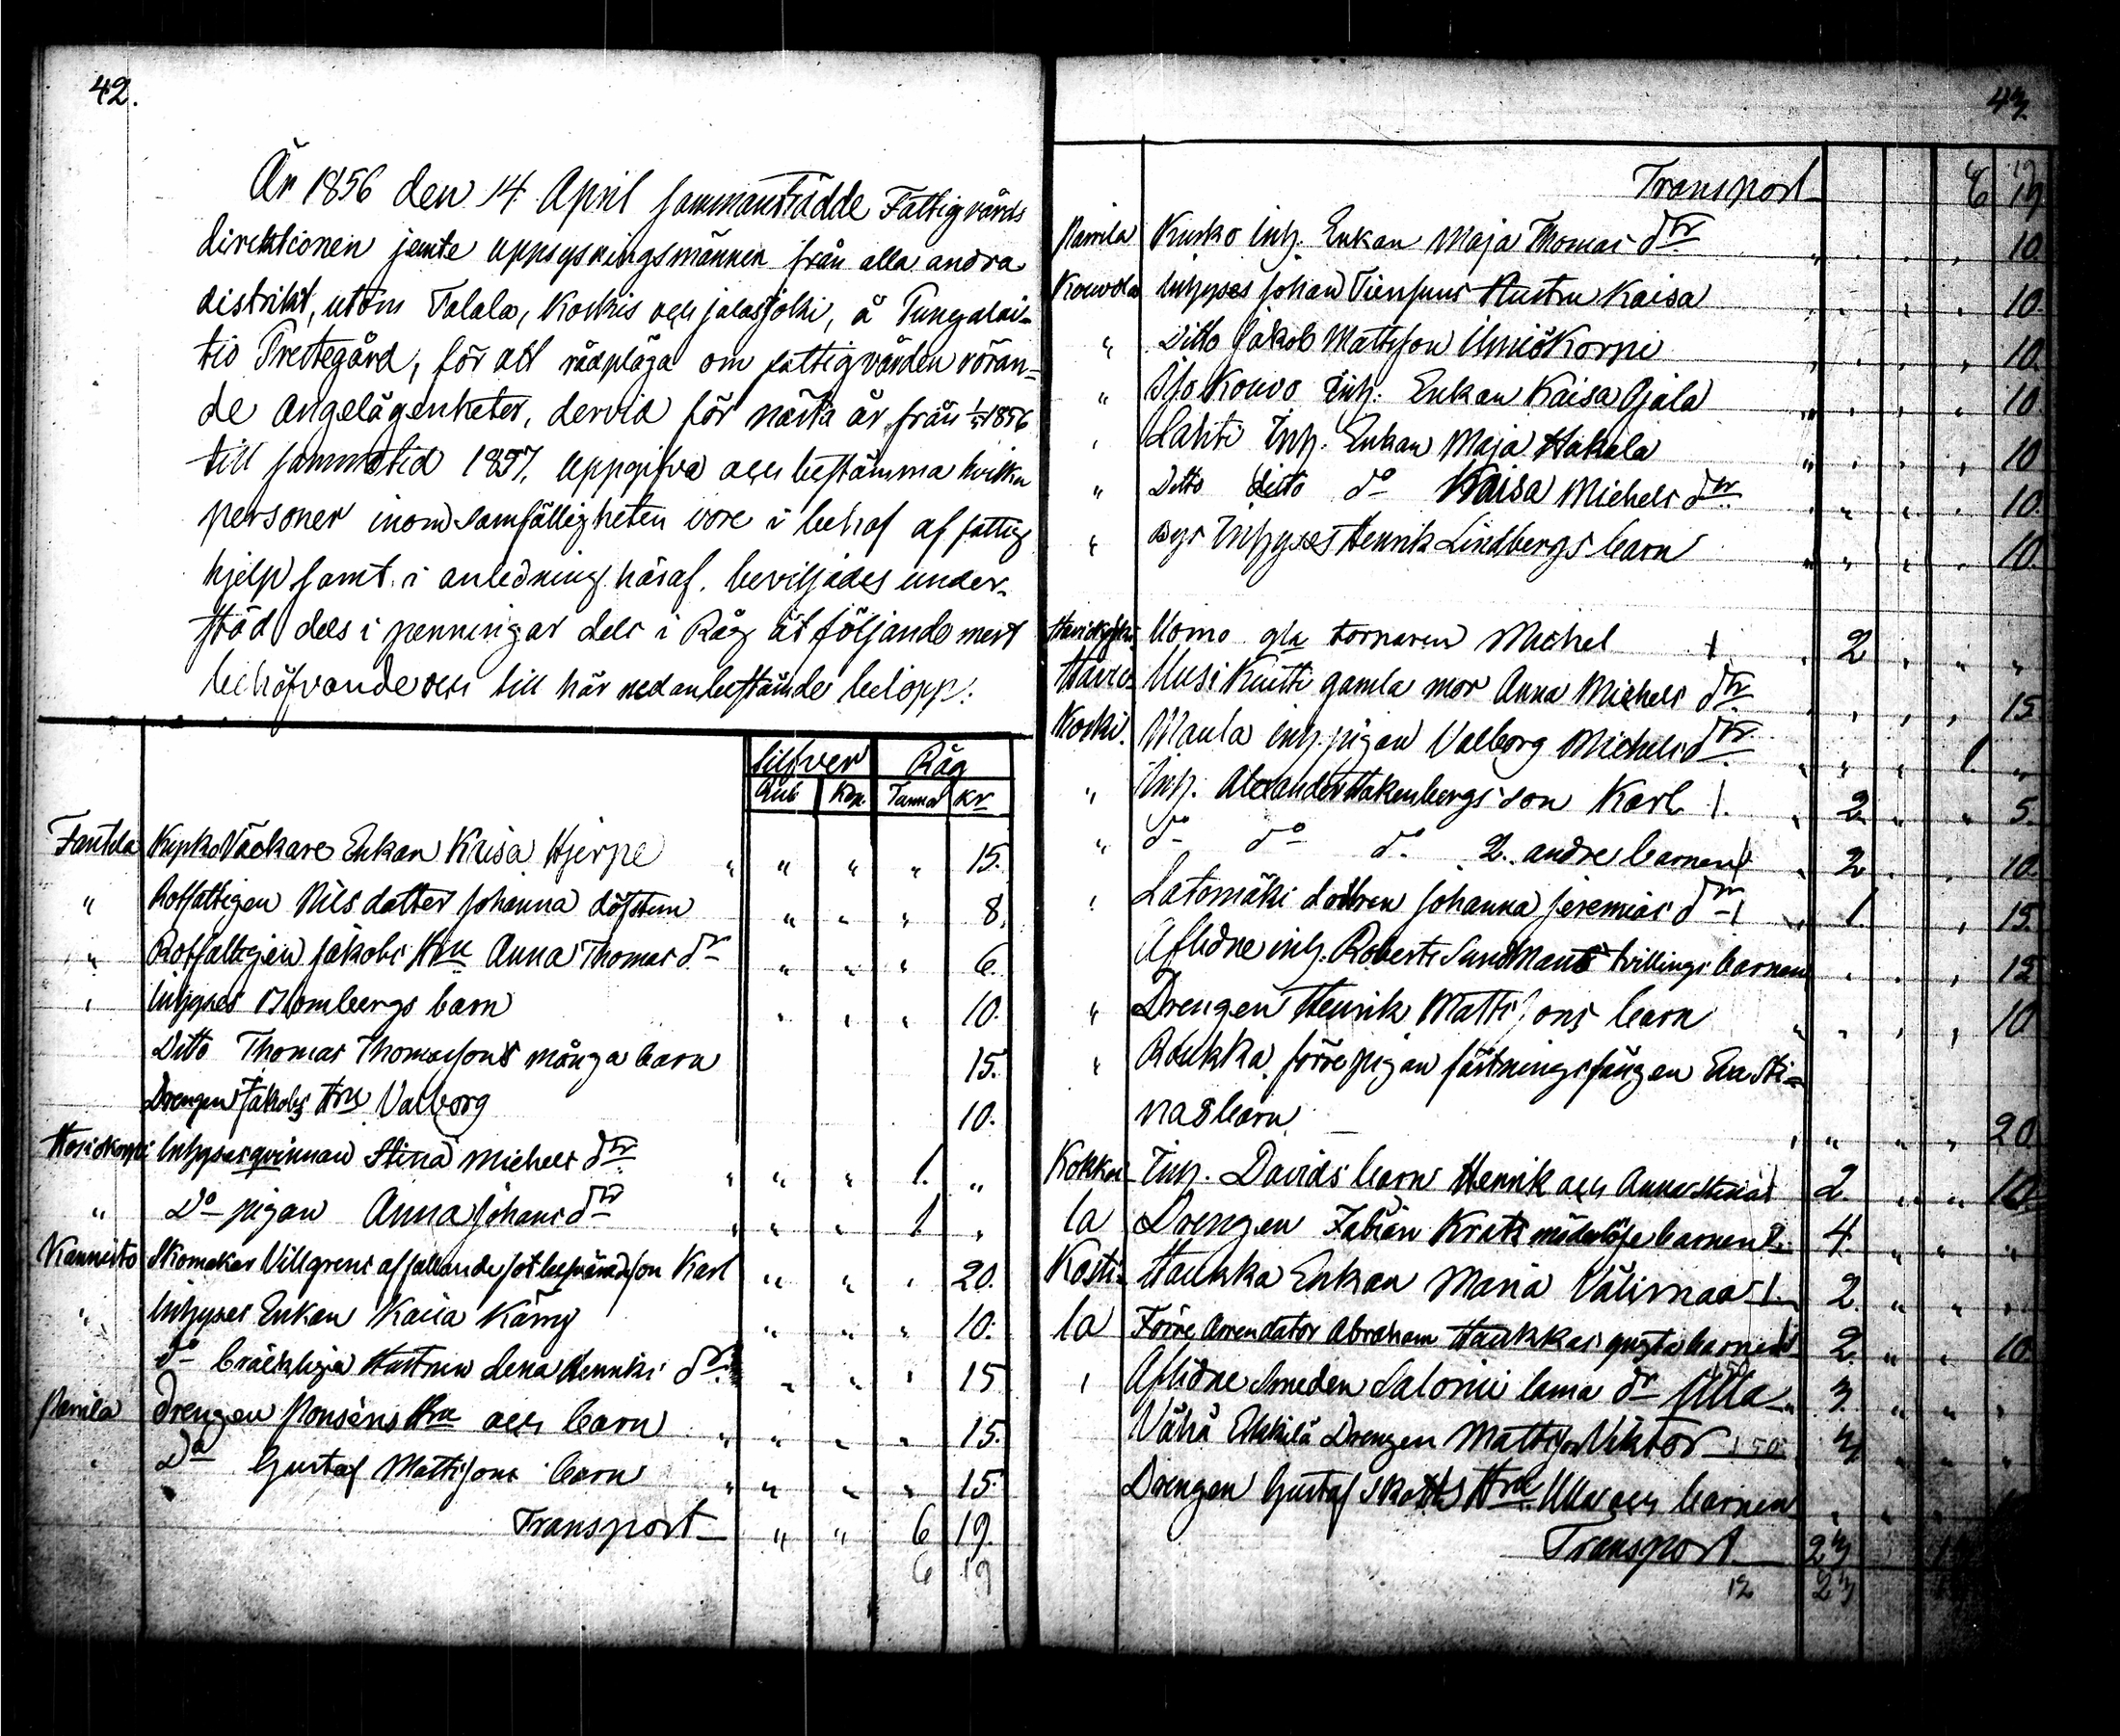 42.
År 1856 den 14 April sammanträdde Fattigvårds
direktionen jemte uppsyningsmännen från alla andra
distrikt, utom Talala, Koskis och jalasjoki, å Pungalai-
tio Prestegård, för att rådpläga om fattigvården röran=
de angelägenheter, dervid för nästa år från 1/5 1856
till sammatid 1857, uppgifva och bestämma hvilka
personer inom samfälligheten vore i behof af fattig
hjelp samt i anledning häraf beviljades under-
stöd dels i penningar dels i Råg åt följande mest
behöfvande och till här nedanbestämde belopp:
Silfver Råg
Rub Kop. Tunna Kr
Fantila Kupko Väckare Enkan Kaisa Hjerpe " " " " 15.
" Rotfattigen Nils dotter Johanna döfstum " " " 8.
" Rotfattigen Jakobs Hru Anna Thomas dr " " " 6.
" Inhyses Blombergs barn " " " 10.
Ditto Thomas Thomassons många barn 15.
Drengen Jakobs Hru Valborg 10.
Inhysesqvinnan Stina Michels dtr " " " 1. "
" Do pigan Anna Johans dtr " " " 1 "
Kannisto Skomakar Villgrens af fallande sot son Karl " " " 20.
" Inhyses Enkan Kaisa " " " 10.
do bräckliga Hustrun Lena Henriks dr " " " 15
Panila Drengen Ponséns Hru och barn " " " " 15.
" Do Gustaf Mattssons barn " " " " 15.
Transport " " 6 19.
6 19
43.
Transport 6 19
Panila Kusko Inh. Enkan Maja Thomas dtr " " " " 10
Kouvola Inhyses Johan Hustru Kaisa " " " " 10.
" Ditto Jakob Mattsson Ilmiökorpi " " " " 10.
" Iso Kouvo Inh. Enkan Kaisa Ojala " " " " 10.
" Lahti Inh. Enkan Maja Hakala " " " " 10
" Ditto ditto do Kaisa Michels dtr " " " 10.
" Bys Inhyses Henrik Lindbergs barn " " " " 10.
Uomo gla tornaren Michel 1 " 2 " " "
Uusi Knitti gamla mor Anna Michels dtr " " " 15
Koski. Maula inh. pigan Valborg Michels dtr " " " 1. "
" Inh. Alexander Hakenbergs son Karl 1. " 2 " " 5.
" do do do 2 andre barnen " 2 " " 10.
" Latomäki dottren Johanna Jeremias dtr 1 " 1. " " 15.
Aflidne inh. Roberts Sundmans tvillings barnen " " " 15
" Drengen Henrik Mattssons barn " " " " 10
" Roukka förre pigan fästningsfången Eva Sti=
nas barn " " " " 20
Kokko- Inh. Davids barn Henrik och Anna Stinas 2 " " 10.
la Drengen Fabian moderlösa barnen 2. 4. " " "
Kosti- Haukka Enkan Maria Välimaa 1. 2. " " "
la Förre Arrendator Abraham Haukkas barnen 2. " " 10.
" Aflidne Smeden Salonii lama dr Ulla 1 50 3. " " "
Vähä Eskkilä Drengen Mattsson Viktor 1 50. 3 " " "
Drengen Gustaf Hru Ulla och barnen " " "
Transport 23
12 23